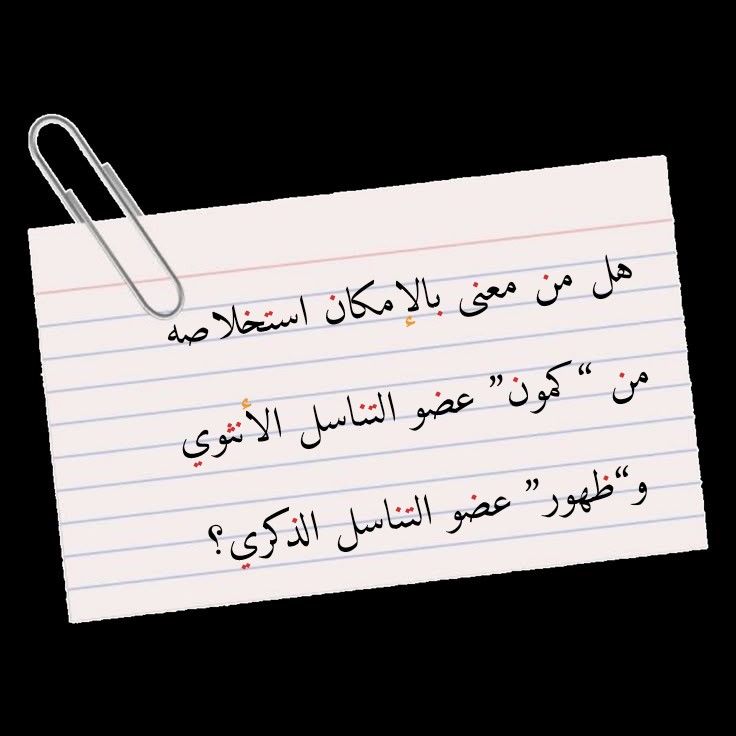 هل من معنى بالإمكان استخلاصه
من “كمون” عضو التناسل الأنثوي
و“ظهور” عضو التناسل الذكري؟